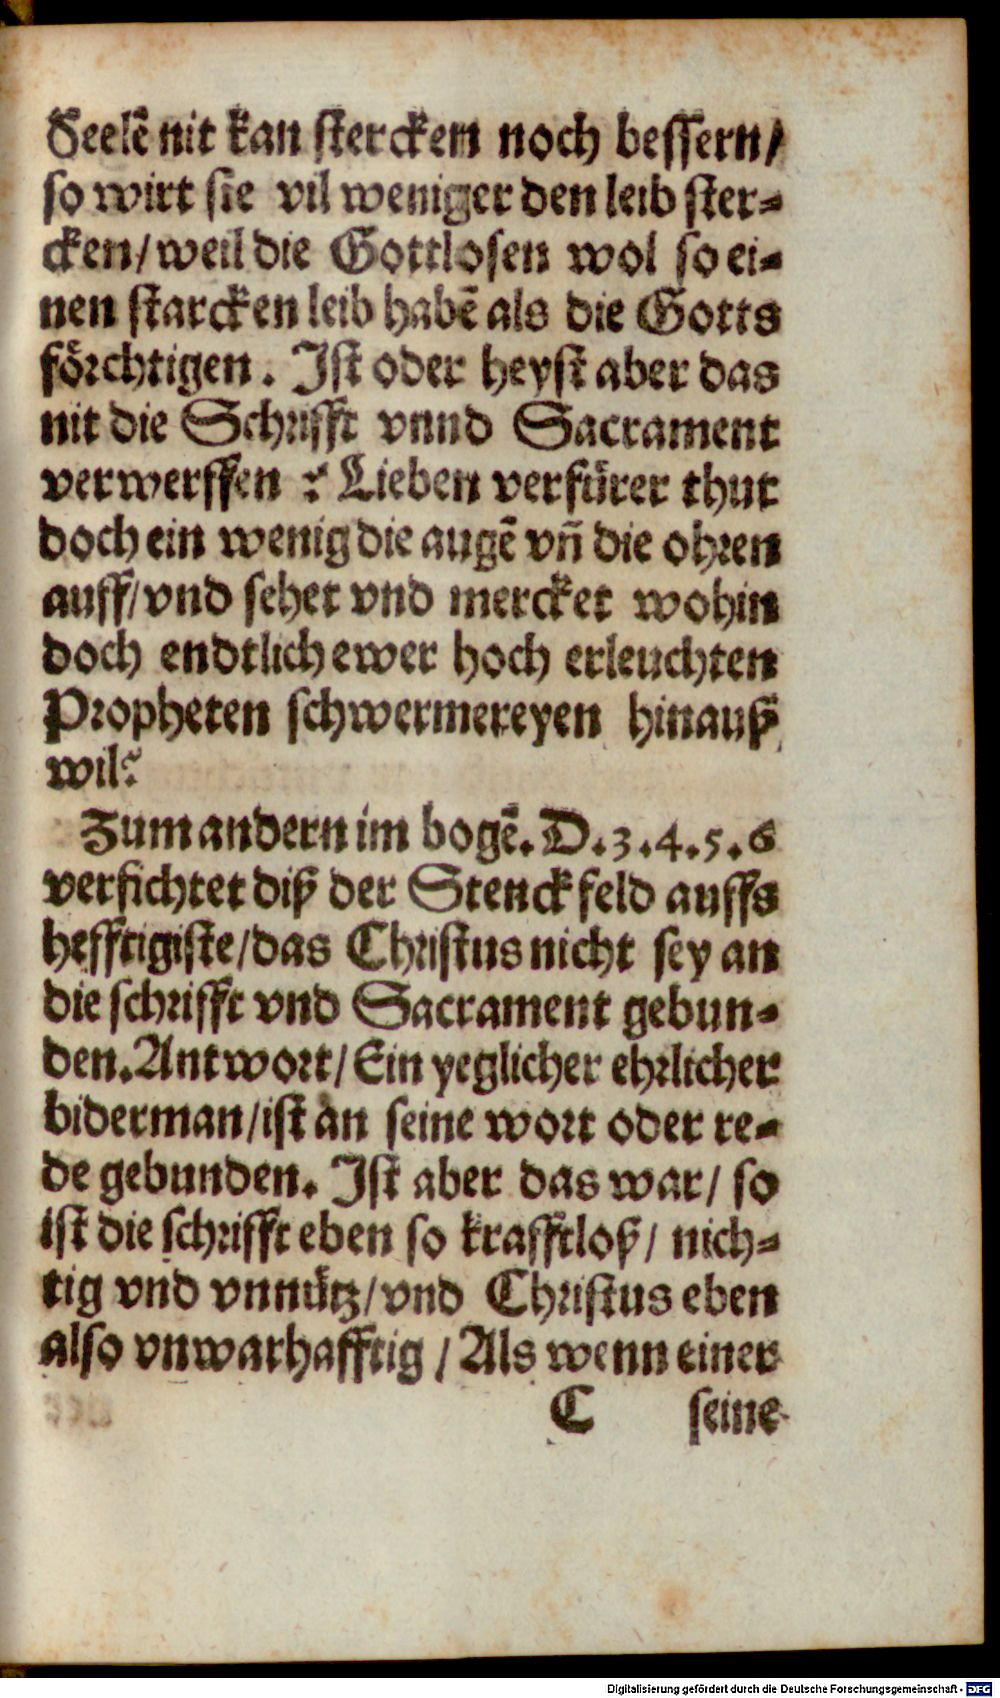 Seelē nit kan stercken noch bessern/
so wirt sie vil weniger den leib ster⸗
cken/weil die Gottlosen wol so ei⸗
nen starcken leib habē als die Gotts
förchtigen. Ist oder heyst aber das
nit die Schrifft vnnd Sacrament
verwerffen ? Lieben verfürer thut
doch ein wenig die augē vn̄ die ohren
auff/vnd sehet vnd mercket wohin
doch endtlich ewer hoch erleuchten
Propheten schwermereyen hinauß
wil?
Zum andern im bogē. D.3.4.5.6
verfichtet diß der Stenckfeld auffs
hefftigiste/das Christus nicht sey an
die schrifft vnd Sacrament gebun⸗
den. Antwort/Ein yeglicher ehrlicher
biderman/ist an seine wort oder re⸗
de gebunden. Ist aber das war/ so
ist die schrifft eben so krafftloß/ nich⸗
tig vnd vnnütz/vnd Christus eben
also vnwarhafftig / Als wenn einer
C seine
Digitalisierung gefördert durch die Deutsche Forschungsgemeinschaft - DFG